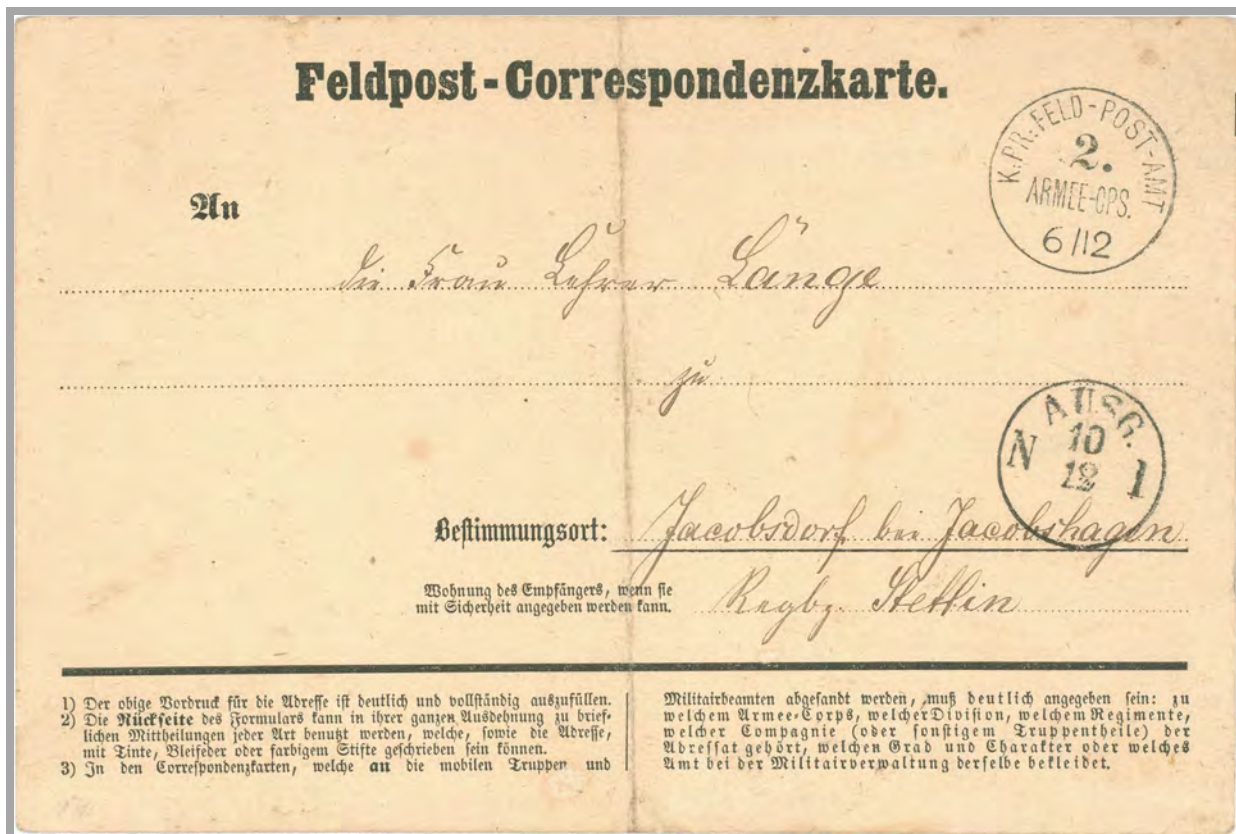 Feldpost-Correspondenzkarte.
K:PR:FELD-POST-AMT
2.
ARMEE-CPS.
6/12
An
die Frau Lehrer Länge
zu
AUSG.
N 10 1
12
Bestimmungsort: Jacobsdorf bei Jacobshagen
Wohnung des Empfängers, wenn sie
mit Sicherheit angegeben werden kann.
Regbz. Stettin
1) Der obige Vordruck für die Adresse ist deutlich und vollständig auszufüllen.
2) Die Rückseite des Formulars kann in ihrer ganzen Ausdehnung zu brief-
lichen Mittheilungen jeder Art benutzt werden, welche, sowie die Adresse,
mit Tinte, Bleifeder oder farbigem Stifte geschrieben sein können.
3) In den Correspondenzkarten, welche an die mobilen Truppen und
Militairbeamten abgesandt werden, muß deutlich angegeben sein: zu
welchem Armee-Corps, welcher Division, welchem Regimente,
welcher Compagnie (oder sonstigem Truppentheile) der
Adressat gehört, welchen Grad und Charakter oder welches
Amt bei der Militairverwaltung derselbe bekleidet.